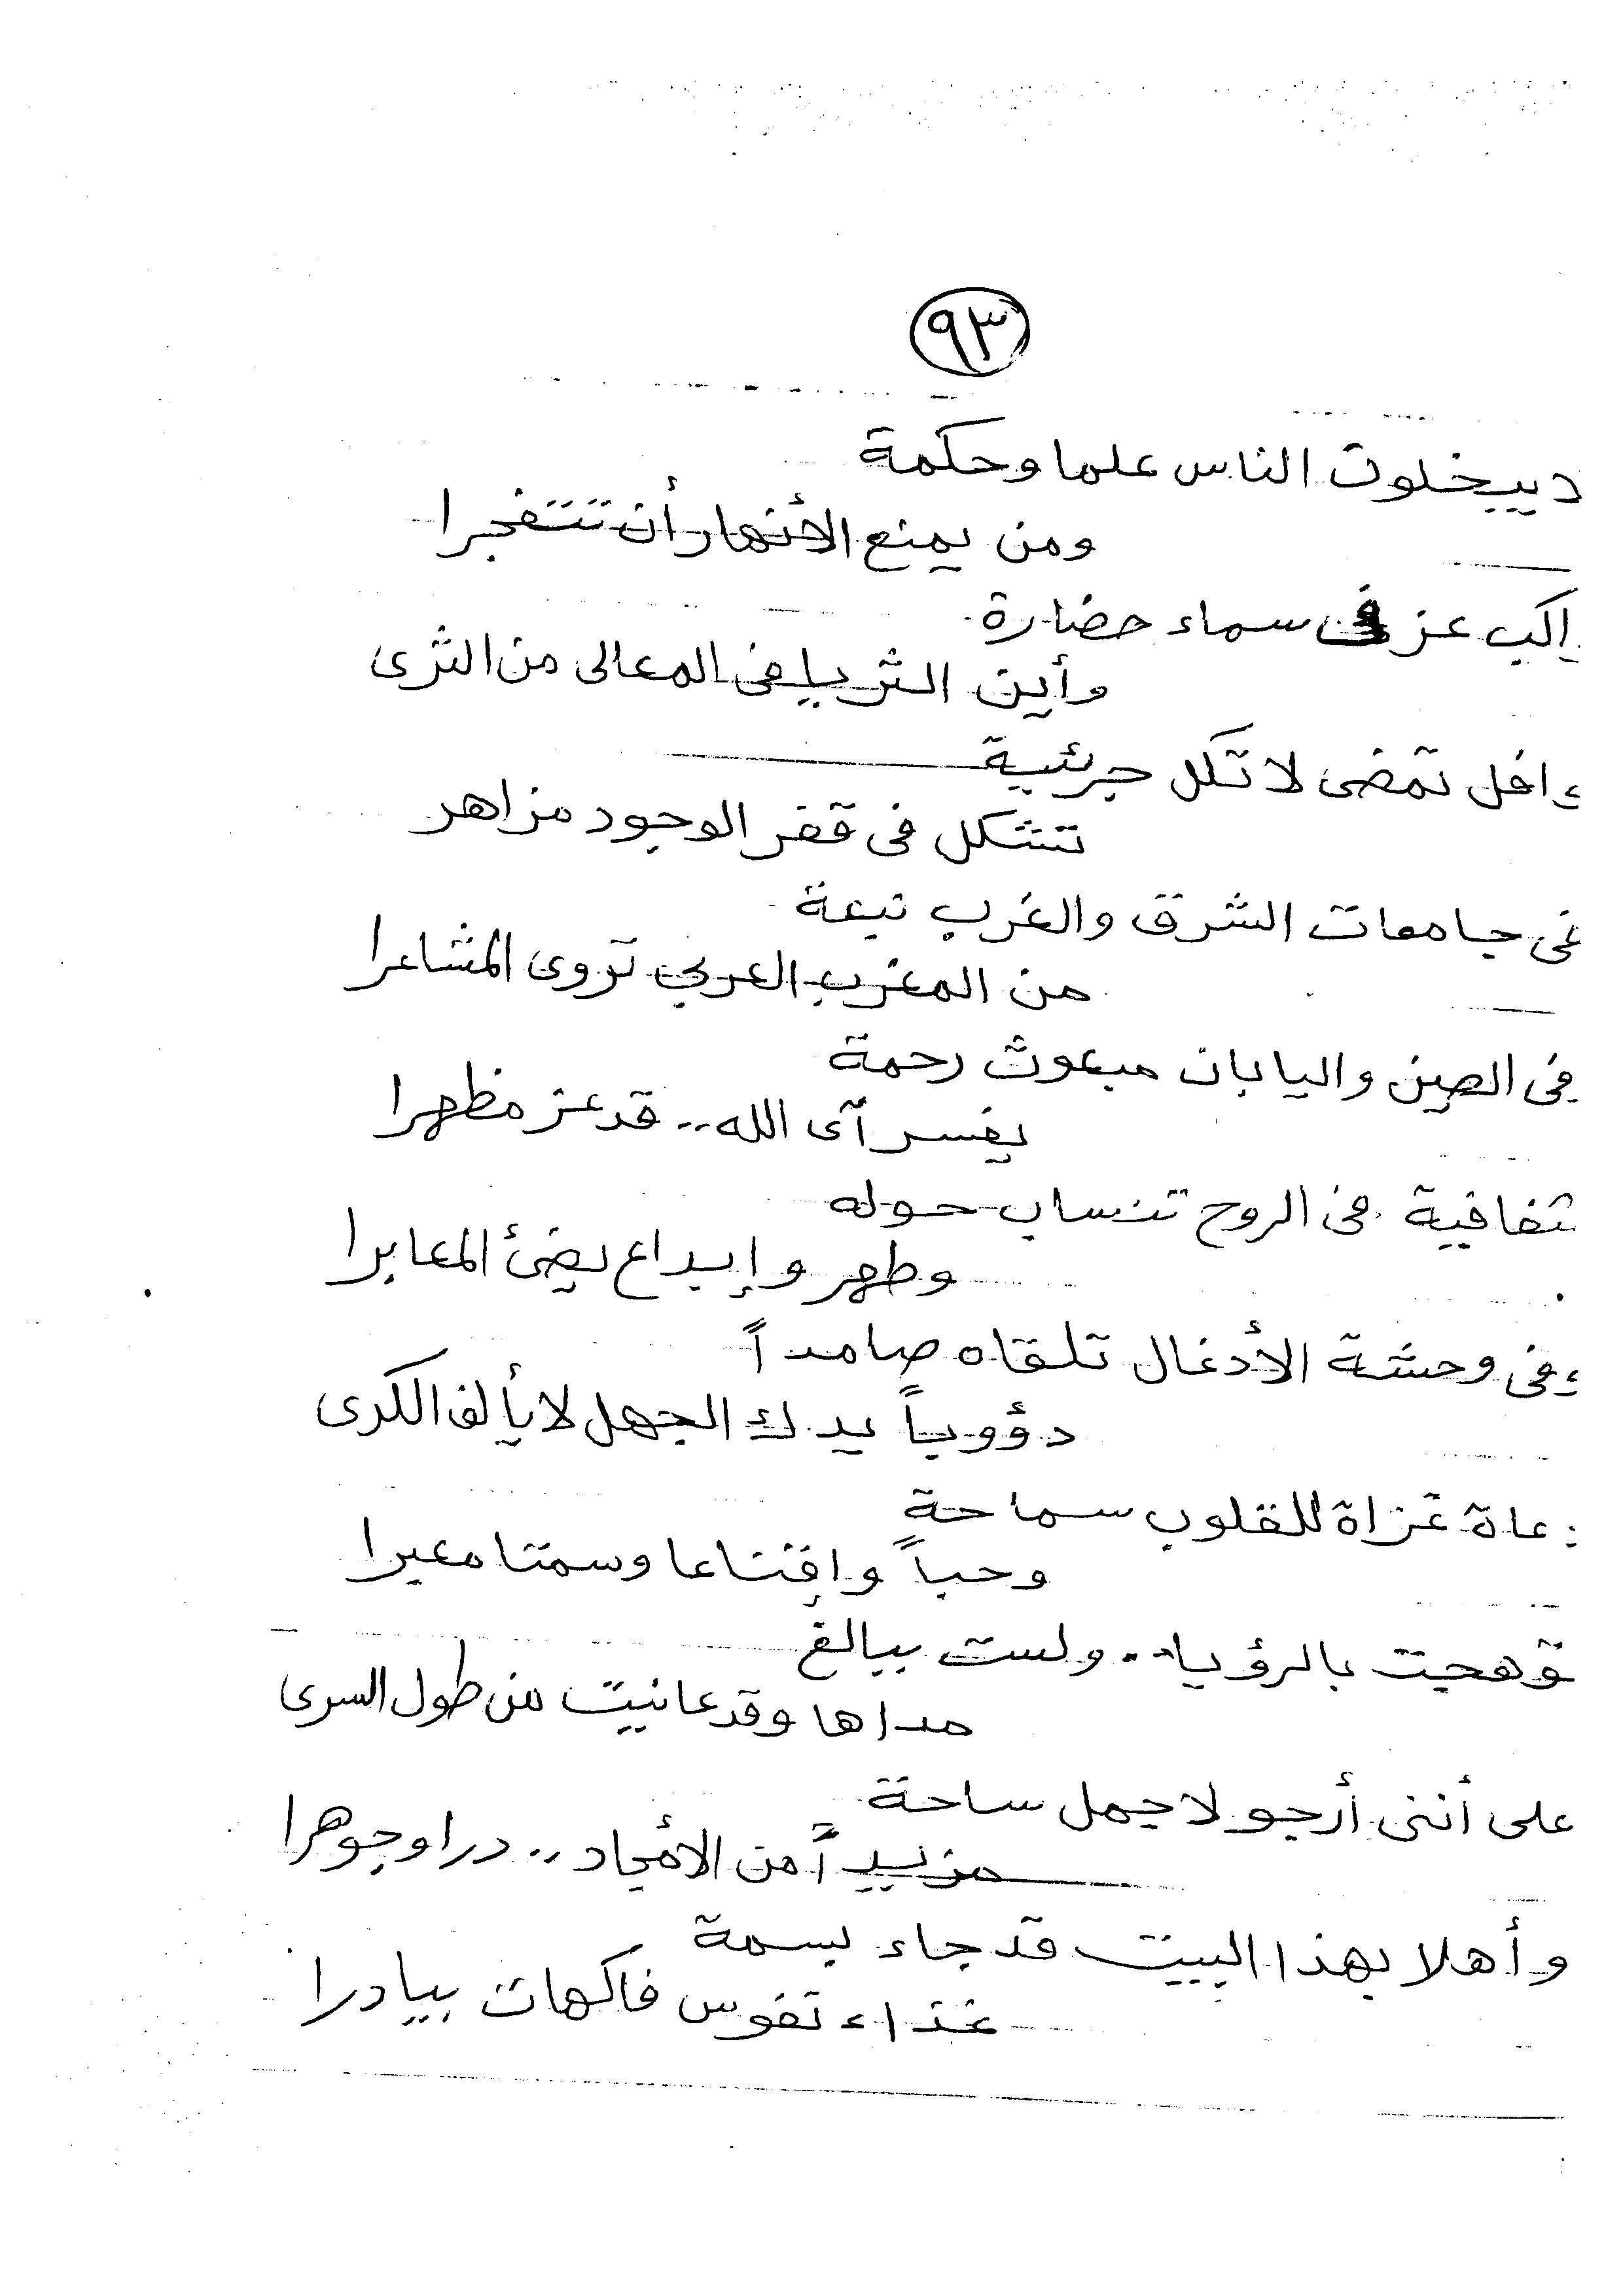 ٩٣
د يبخلون الناس علما وحكمة
ومن يمنع الأنهار أن تتفجرا
اكب عز فى سماء حضارة
وأين الثريا فى المعالى من الثرى
افل تمضى لا تكل جريئية
تشكل فى قفر الوجود مزاهر
فى جامعات الشرق والغرب نبعة
من المغرب العربي تروى المشاعرا
فى الصين واليابان مبعوث رحمة
يفسر آى الله .. قد عز مظهرا
ثفافية فى الروح تنساب حوله
وطهر وإبداع يضئ المعابرا
وفى وحشة الأدغال تلقاه صامداً
دؤوباً يدك الجهل لا يألف الكرى
عاة غزاة للقلوب سماحة
وحباً وإقتناعا وسمتا معبرا
توهجت بالرؤيا .. ولست ببالغ
مداها وقد عانيت من طول السرى
على أننى أرجو لاجمل ساحة
مزيداً من الأمجاد .. درا وجوهرا
وأهلا بهذا البيت قد جاء بسمة
غذاء نفوس فاكهات بيادرا